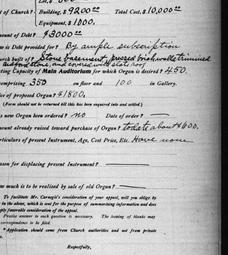 of Church? { Building, $9200.00 Total Cost, $10,000.00
Equipment, $1000.
Amount of Debt? $3000.00
is Debt provided for? By ample subscription
Church built of? Stone basement, pressed brick walls trimmed
and covered with slate roof
ting Capacity of Main Auditorium for Which Organ is desired? 450.
comprising 350 on floor and 100 in Gallery.
ice of proposed Organ? $1800.
(Form should not be returned till this has been inquired into and settled.)
new Organ been Ordered? no Date of order?
ount already raised toward purchase of Organ? to date about $600.
articulars of present Instrument, Age, Cost Price, Etc. Have none
eason for displacing present Instrument?
w much is to be realised by sale of old Organ?
To facilitate Mr. Carnegie's consideration of your appeal, will you oblige by
in the above, which is sent for the purpose of summarising information and does
ply favorable consideration of the appeal.
Precise answer to each question is necessary. The testing of blanks may
Application should come from Church authorities and not from private
Respectfully,